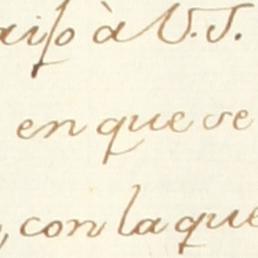 aiſo à V.S.
en que se
, con la que